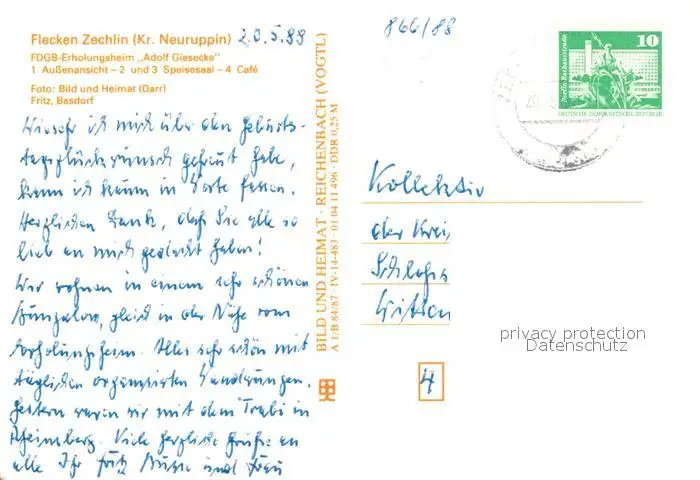 Flecken Zechlin (Kr. Neuruppin) 20.5.88
FDGB-Erholungsheim „Adolf Giesecke"
1 Außenansicht – 2 und 3 Speisesaal – 4 Café
Foto: Bild und Heimat (Darr)
Fritz, Basdorf
Wiesehr ich mich über den Geburts-
tagsglückwunsch gefreut habe,
kann ich kaum in Worte fassen.
Herzlichen Dank, daß Sie alle so
lieb an mich gedacht haben!
Wir wohnen in einem sehr schönen
Bungalow, gleich in der Nähe vom
Erholungsheim. Alles sehr schön mit
täglichen organisierten Wanderungen.
Gestern waren wir mit dem Trabi in
Rheinsberg. Viele herzliche Grüße an
alle Ihr Fritz und Frau
BILD UND HEIMAT · REICHENBACH (VOGTL)
A 1/B 84/87 · IV-14-483 · 01 04 11 496 · DDR 0,25 M
866/88
10
Berlin, Rathausstraße
DEUTSCHE DEMOKRATISCHE REPUBLIK
Kollektiv
der
Schloß
4
privacy protection
Datenschutz